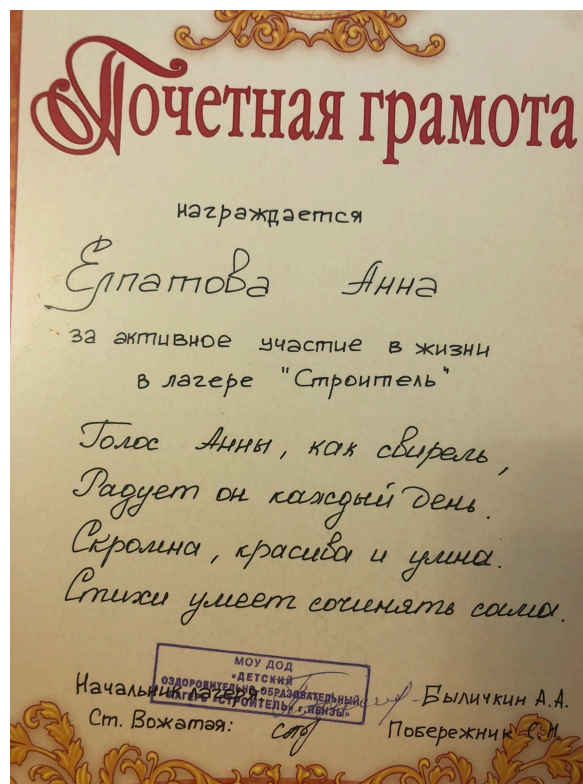 Почетная грамота
награждается
Елпатова Анна
за активное участие в жизни
в лагере "Строитель"
Голос Анны, как свирель,
Радует он каждый день.
Скромна, красива и умна.
Стихи умеет сочинять сама.
МОУ ДОД
"ДЕТСКИЙ
ОЗДОРОВИТЕЛЬНО-ОБРАЗОВАТЕЛЬНЫЙ
ЛАГЕРЬ "СТРОИТЕЛЬ" г. ПЕНЗЫ"
Начальник лагеря: Быличкин А.А.
Ст. Вожатая: Побережник С.Н.